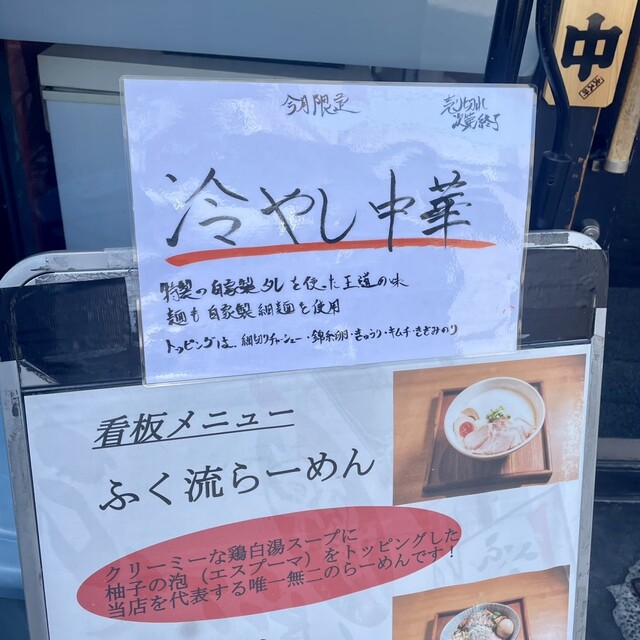 今月限定
売り切れ
次第終了
冷やし中華
特製の自家製タレを使った王道の味
麺も自家製細麺を使用
トッピングは、細切りチャーシュー・錦糸卵・きゅうり・キムチ・きざみのり
中
看板メニュー
ふく流らーめん
クリーミーな鶏白湯スープに
柚子の泡（エスプーマ）をトッピングした
当店を代表する唯一無二のらーめんです！